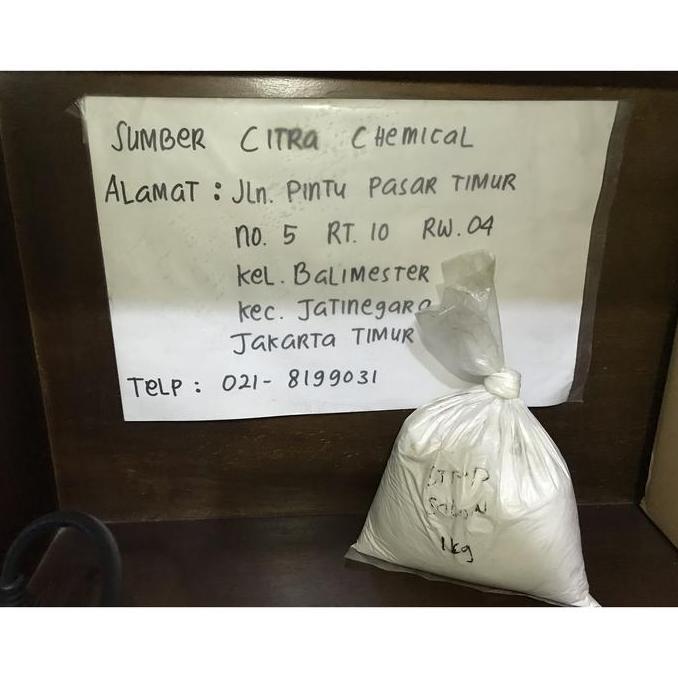 SUMBER CITRA CHEMICAL
ALAMAT : JLn. PINTU PASAR TIMUR
no. 5 RT. 10 RW. 04
KeL. BALIMESTER
Kec. JATINEGARA
JAKARTA TIMUR
TELP : 021- 8199031
STPP
SABUN
1 kg